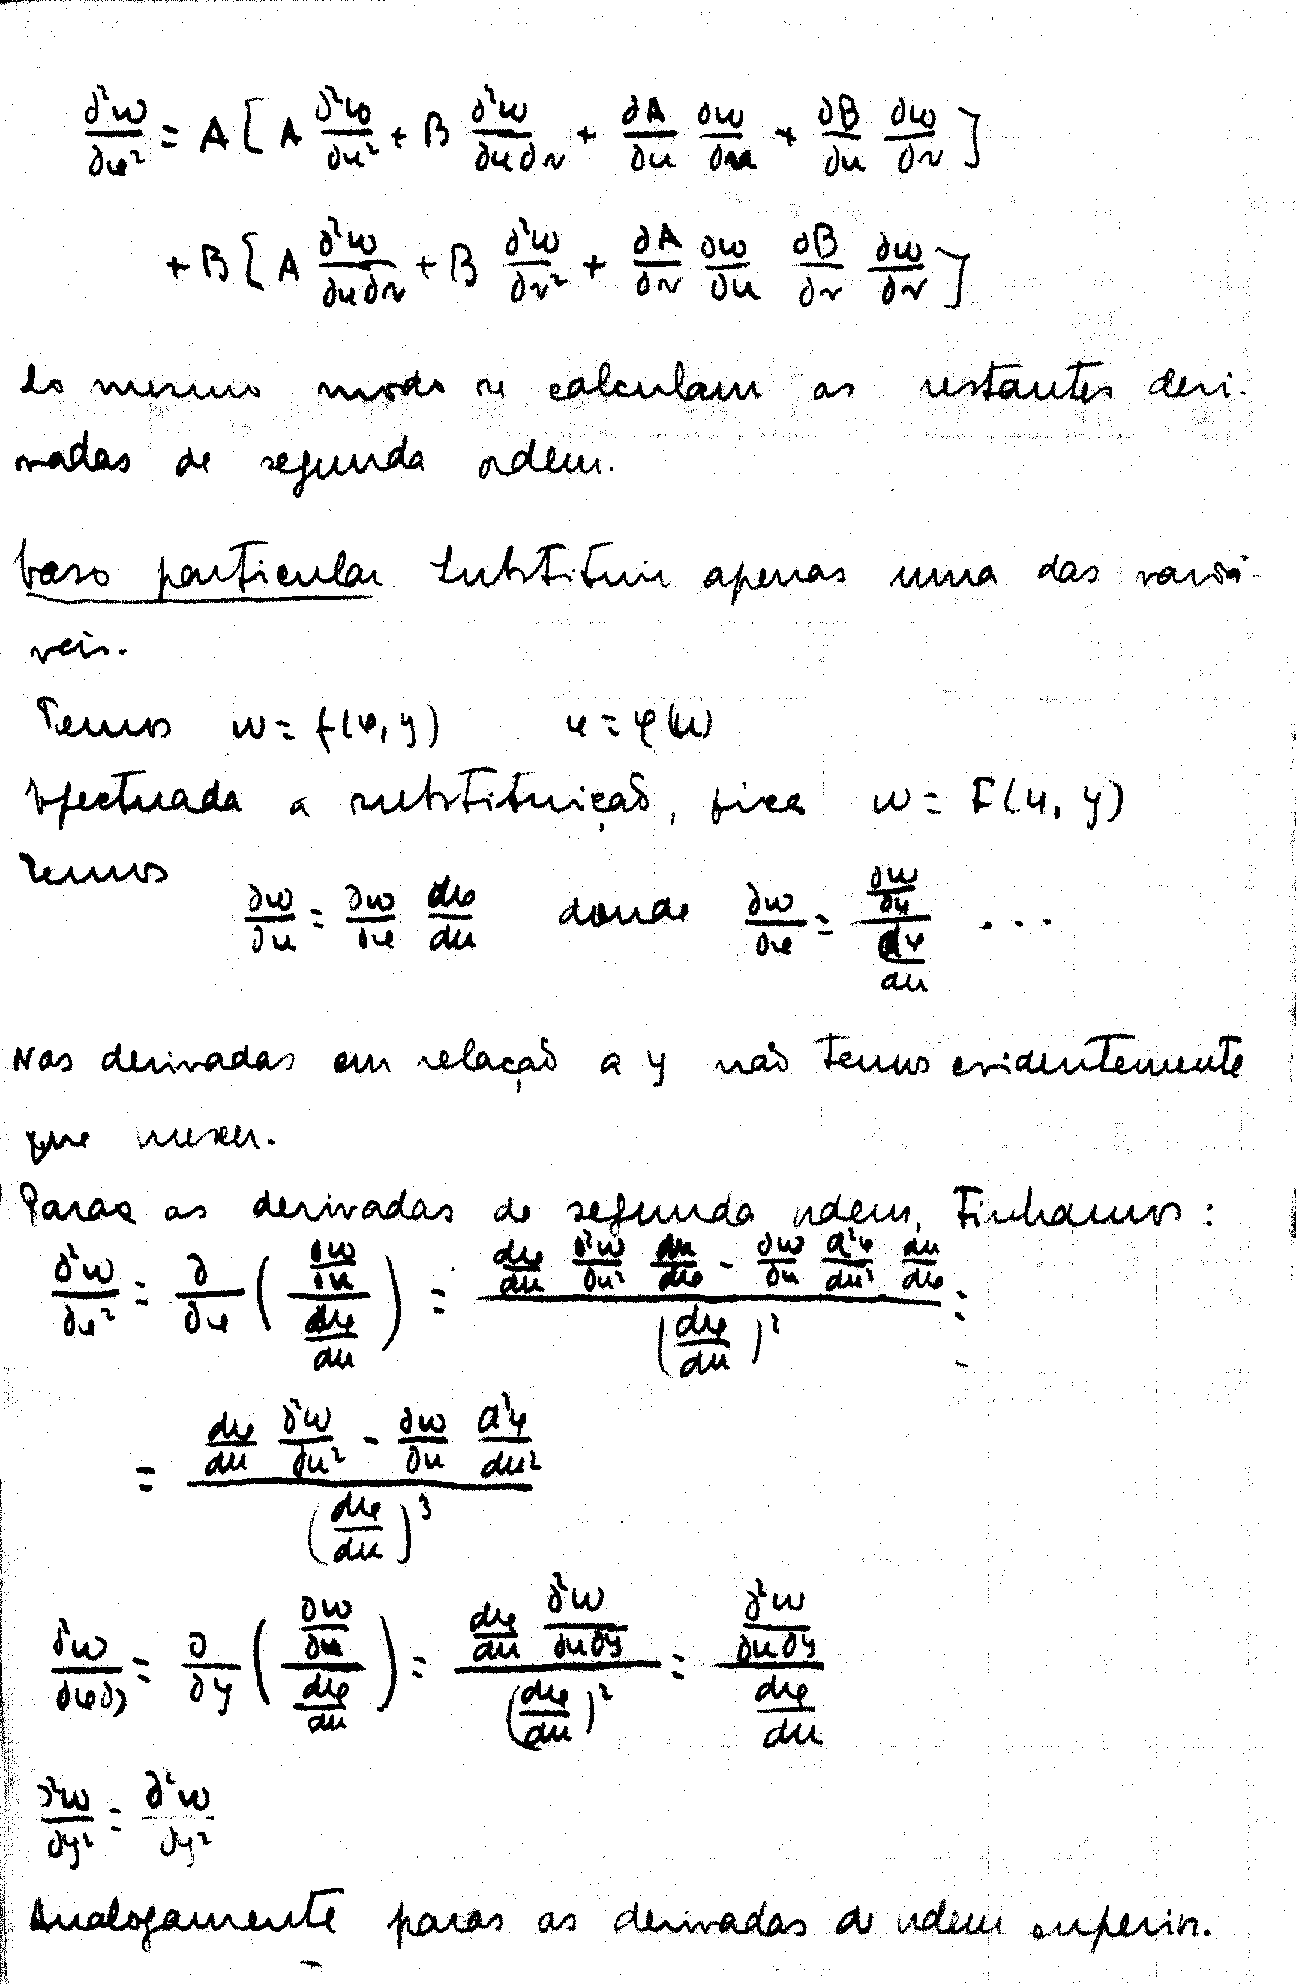 ∂²w/∂x² = A [ A ∂²w/∂u² + B ∂²w/∂u∂v + ∂A/∂u ∂w/∂u + ∂B/∂u ∂w/∂v ]
+ B [ A ∂²w/∂u∂v + B ∂²w/∂v² + ∂A/∂v ∂w/∂u ∂B/∂v ∂w/∂v ]
Do mesmo modo se calculam as restantes deri-
vadas de segunda ordem.
Caso particular Substituir apenas uma das variá-
veis.
Temos w = f(x, y) x = φ(u)
Efectuada a substituição, fica w = F(u, y)
Temos
∂w/∂u = ∂w/∂x dx/du donde ∂w/∂x = (∂w/∂u)/(dx/du) ...
Nas derivadas em relação a y não temos evidentemente
que mexer.
Para as derivadas de segunda ordem, tinhamos:
∂²w/∂x² = ∂/∂x ( (∂w/∂u)/(dx/du) ) = (dx/du ∂²w/∂u² du/dx - ∂w/∂u d²x/du² du/dx)/(dx/du)² =
= (dx/du ∂²w/∂u² - ∂w/∂u d²x/du²)/(dx/du)³
∂²w/∂x∂y = ∂/∂y ( (∂w/∂u)/(dx/du) ) = (dx/du ∂²w/∂u∂y)/(dx/du)² = (∂²w/∂u∂y)/(dx/du)
∂²w/∂y² = ∂²w/∂y²
Analogamente para as derivadas de ordem superior.